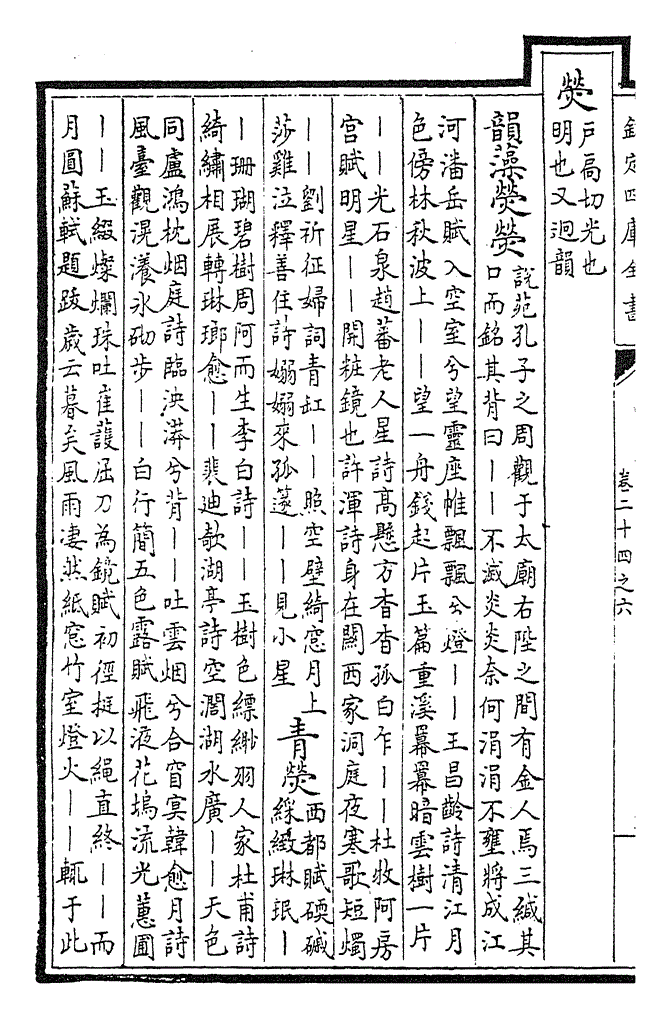 欽定四庫全書
卷二十四之六
熒
戶扃切光也
明也又迥韻
韻藻熒熒
說苑孔子之周觀于太廟右陛之間有金人焉三緘其
口而銘其背曰——不滅炎炎奈何涓涓不壅將成江
河潘岳賦入空室兮望靈座帷飄飄兮燈——王昌齡詩清江月
色傍林秋波上——望一舟錢起片玉篇重溪羃羃暗雲樹一片
——光石泉趙蕃老人星詩高懸方杳杳孤白乍——杜牧阿房
宮賦明星——開粧鏡也許渾詩身在關西家洞庭夜寒歌短燭
——劉祈征婦詞青缸——照空壁綺窓月上
莎雞泣釋善住詩嫋嫋來孤邃——見小星
青熒
西都賦碝磩
綵緻琳珉—
—珊瑚碧樹周阿而生李白詩——玉樹色縹緲羽人家杜甫詩
綺繡相展轉琳瑯愈——裴迪欹湖亭詩空濶湖水廣——天色
同盧鴻枕烟庭詩臨泱漭兮背——吐雲烟兮合窅冥韓愈月詩
風臺觀滉瀁氷砌步——白行簡五色露賦飛液花塢流光蕙圃
——玉綴燦爛珠吐崔護屈刀為鏡賦初徑挺以繩直終——而
月圓蘇軾題跋歲云暮矣風雨凄然紙窓竹室燈火——輒于此